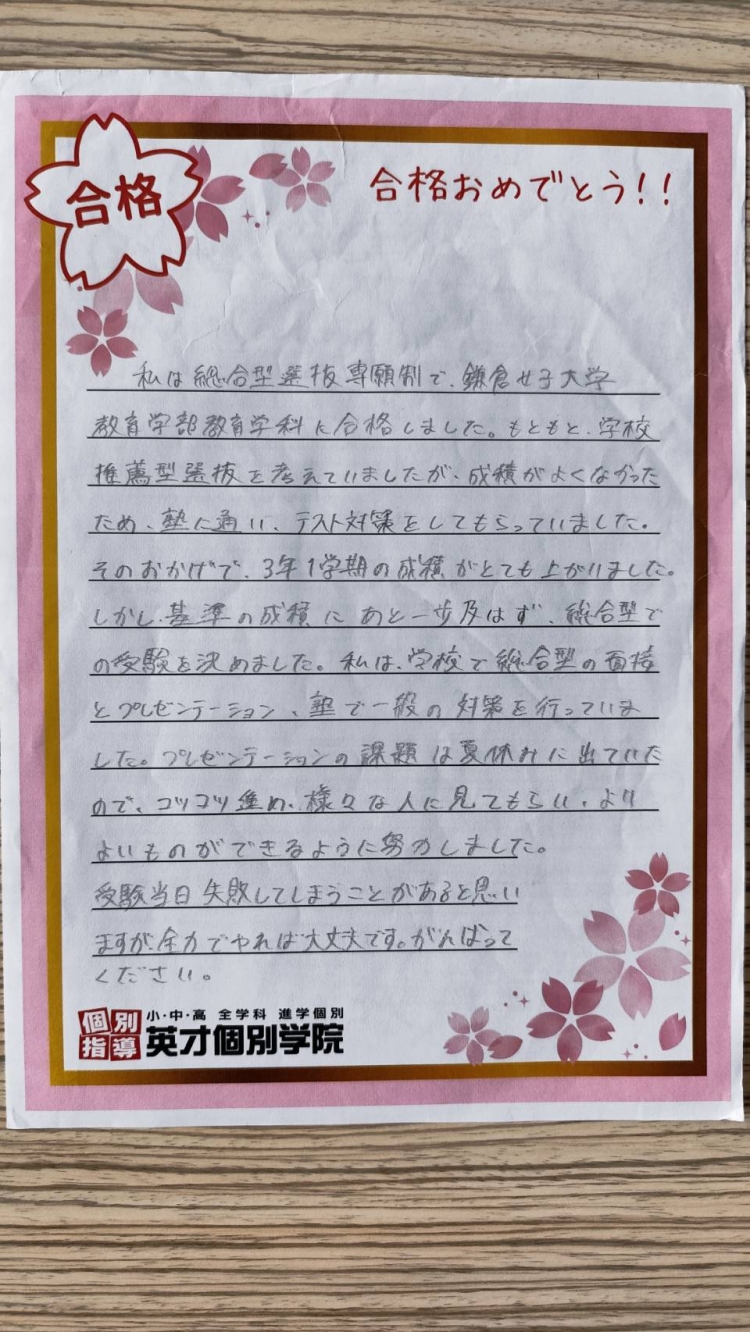 合格
合格おめでとう!!
私は総合型選抜専願制で、鎌倉女子大学
教育学部教育学科に合格しました。もともと、学校
推薦型選抜を考えていましたが、成績がよくなかった
ため、塾に通い、テスト対策をしてもらっていました。
そのおかげで、3年1学期の成績がとても上がりました。
しかし、基準の成績にあと一歩及ばず、総合型で
の受験を決めました。私は、学校で総合型の面接
とプレゼンテーション、塾で一般の対策を行っていま
した。プレゼンテーションの課題は夏休みに出ていた
ので、コツコツ進め、様々な人に見てもらい、より
よいものができるように努力しました。
受験当日失敗してしまうことがあると思い
ますが、全力でやれば大丈夫です。がんばって
ください。
個別指導
小・中・高 全学科 進学個別
英才個別学院